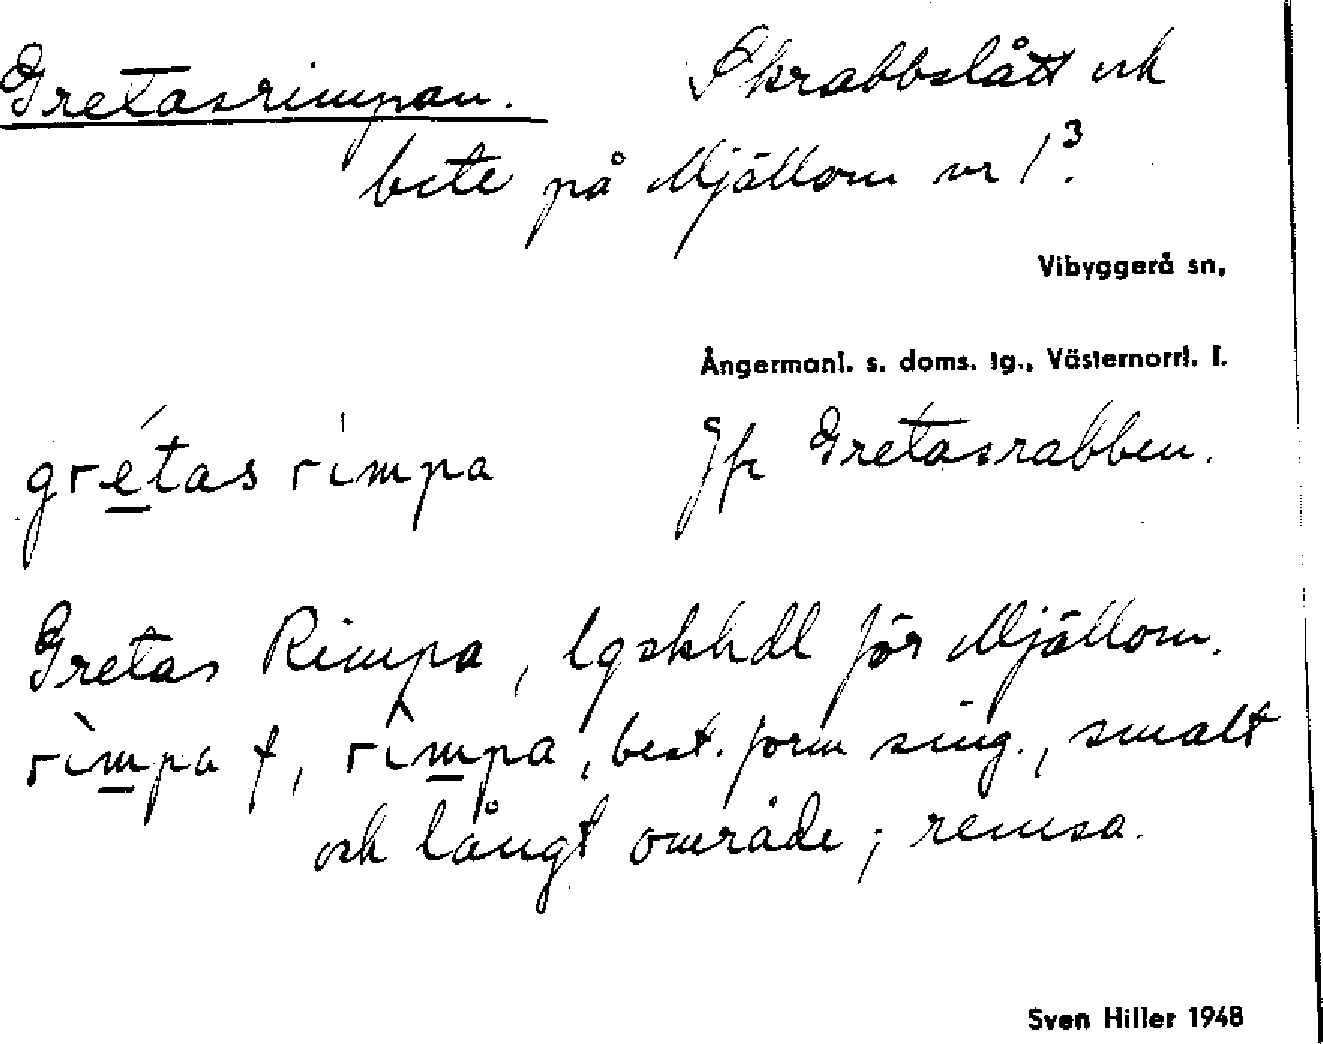 Gretasrimpan. Skrabbslått och
bete på Mjällom nr 1³.
Vibyggerå sn,
Ångermanl. s. doms. tg., Västernorrl. l.
grétas rimpa Jfr Gretasrabben.
Gretas Rimpa, lgskhdl för Mjällom.
rìmpa f, rìmpa, best. form sing., smalt
och långt område; remsa.
Sven Hiller 1948